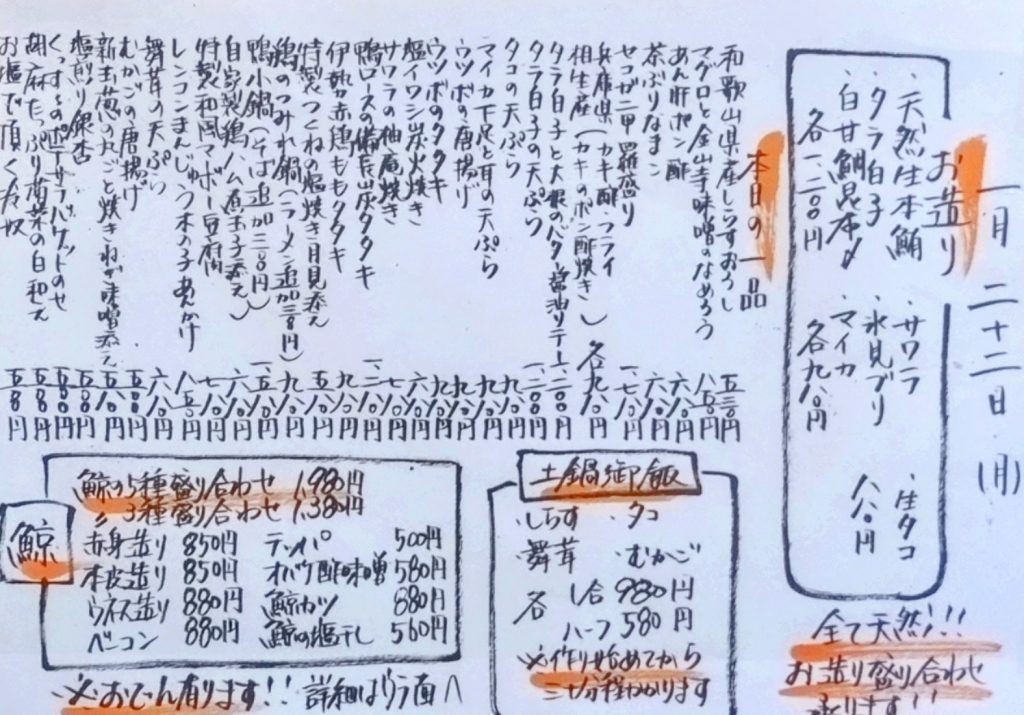 一月二十二日(月)
お造り
・天然生本鮪
・タラ白子
・白甘鯛昆布〆
各一、二〇〇円
・サワラ
・氷見ブリ
・マイカ
各九八〇円
・生タコ
八八〇円
全て天然!!
お造り盛り合わせ
承ります!!
本日の一品
和歌山県産しらすおろし 五三〇円
マグロと金山寺味噌のなめろう 八五〇円
あん肝ポン酢 六八〇円
茶ぶりなまこ 六八〇円
セコガニ甲羅盛り 一、七八〇円
兵庫県(カキ酢・フライ
相生産(カキのポン酢焼き) 各九八〇円
タラ白子と大根のバター醤油ソテー 一、二〇〇円
タラ白子の天ぷら 一、二〇〇円
タコの天ぷら 九八〇円
マイカ下足と耳の天ぷら 七八〇円
ウツボの唐揚げ 九八〇円
ウツボのタタキ 九八〇円
塩イワシ炭火焼き 六八〇円
サワラの柚庵焼き 七八〇円
鴨ロースの備長炭タタキ 一、二八〇円
伊勢赤鶏ももタタキ 九八〇円
特製つくねの塩焼き月見添え 五八〇円
鶏のつみれ鍋(ラーメン追加三八〇円) 九八〇円
鴨小鍋(そば追加二八〇円) 一、五八〇円
自家製鶏ハム煮玉子添え 六八〇円
特製和風マーボー豆腐 七八〇円
レンコンまんじゅう木の子あんかけ 八五〇円
舞茸の天ぷら 六八〇円
むかごの唐揚げ 五〇〇円
新玉葱の丸ごと焼きねぎ味噌添え 五八〇円
塩煎り銀杏 五〇〇円
くっすんポテーサラバゲットのせ 五八〇円
胡麻たっぷり菊菜の白和え 五八〇円
お塩で頂くた奴 五八〇円
土鍋御飯
・しらす ・タコ
・舞茸 ・むかご
各 1合 980円
ハーフ 580円
※作り始めてから
三十分程かかります
鯨
鯨の5種盛り合わせ 1,980円
〃 3種盛り合わせ 1,380円
赤身造り 850円 テッパ 500円
本皮造り 850円 オバケ酢味噌 580円
ウネス造り 880円 鯨カツ 880円
ベーコン 880円 鯨の塩干し 560円
※おでん有ります!!詳細はウラ面へ